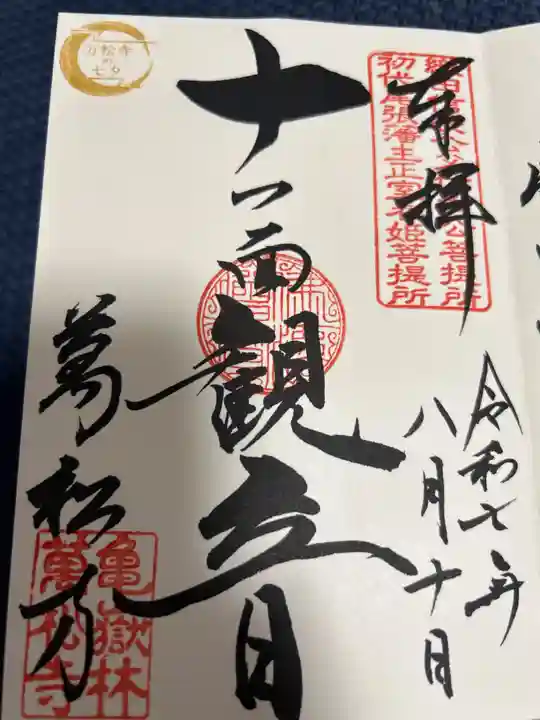 奉拝
初代尾張藩主正室春姫菩提所
令和七年
八月十日
十一面観音
萬松寺
亀嶽林
萬松寺
万松寺
の
七夕